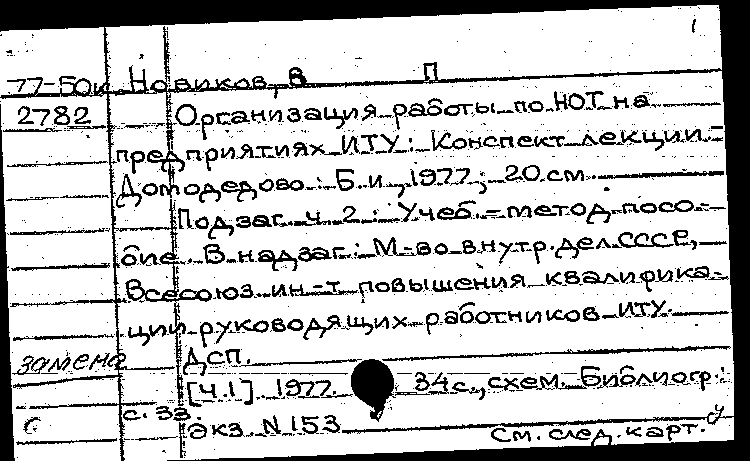 1
77-50к Новиков, В П
2782 Организация работы по НОТ на
предприятиях ИТУ: Конспект лекции.-
Домодедово: Б.и., 1977; 20 см
Подзаг. ч. 2: Учеб.-метод. посо-
бие. В надзаг.: М-во внутр. дел СССР,
Всесоюз. ин-т повышения квалифика-
ции руководящих работников ИТУ.
замена ДСП.
[Ч.1] 1977. 34 с., схем. Библиогр.:
с. 33.
Экз. N 153
См. след. карт.